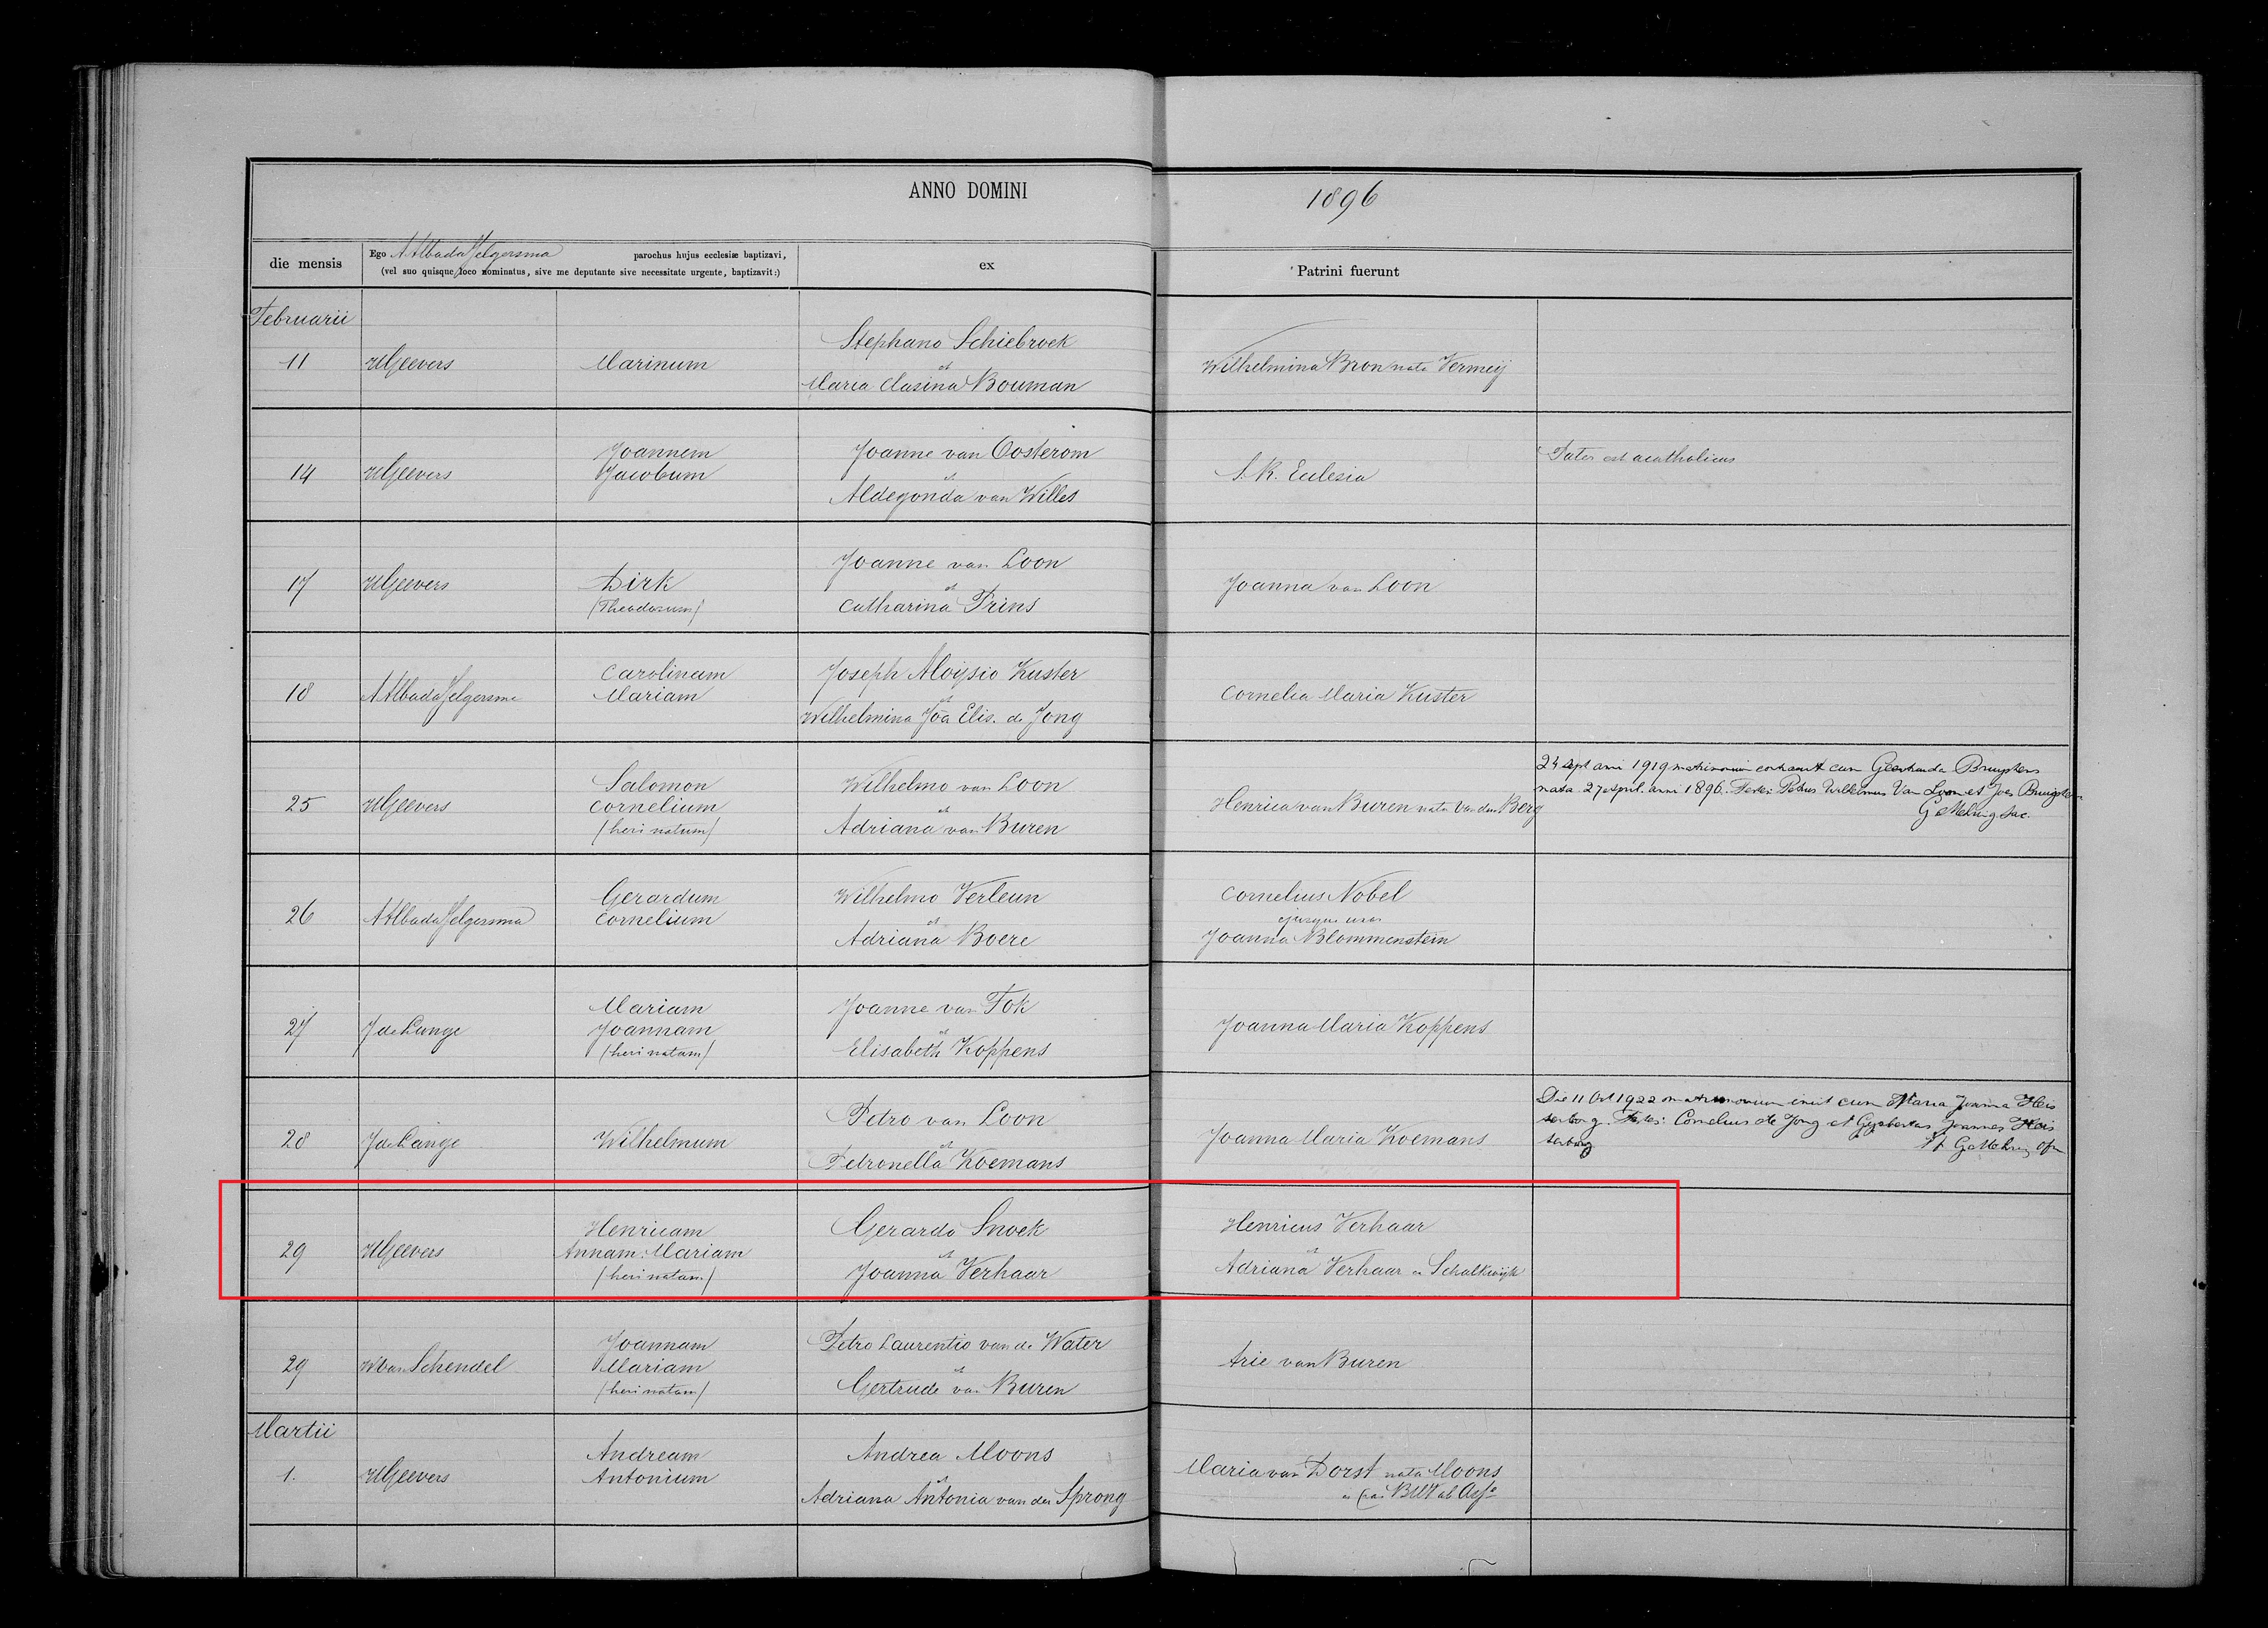 ANNO DOMINI 1896
die mensis
Ego A Albada Jelgersma parochus hujus ecclesiæ baptizavi,
(vel suo quisque loco nominatus, sive me deputante sive necessitate urgente, baptizavit:)
ex
Patrini fuerunt
Februarii
Stephano Schiebroek
11 HGeevers Marinum et Wilhelmina Bron nata Vermeij
Maria Clasina Bouman
Joannem Joanne van Oosterom Pater est acatholicus
14 HGeevers Jacobum et S. R. Eclesia
Aldegonda van Willes
Joanne van Loon
17 HGeevers Dirk et Joanna van Loon
(Theodorum) Catharina Prins
Carolinam Joseph Aloysio Kuster
18 A Albada Jelgersma Mariam et Cornelia Maria Kuster
Wilhelmina Joa Elis. de Jong
Salomon Wilhelmo van Loon
25 HGeevers Cornelium et Henrica van Buren nata Van den Berg
(heri natum) Adriana van Buren
24 sept anni 1919 matrimonium contraxit cum Geertruda Bruijstens
nata 27 April. anni 1896. Testes Petrus Wilhelmus Van Loon et Joes
G Mehring. Sac.
Gerardum Wilhelmo Verleun Cornelius Nobel
26 A Albada Jelgersma Cornelium et ejusque uxor
Adriana Boere Joanna Blommenstein
Mariam Joanne van Fok
27 J de Lange Joannam et Joanna Maria Koppens
(heri natam) Elisabeth Koppens
Petro van Loon
28 J de Lange Wilhelmum et Joanna Maria Koemans
Petronella Koemans
Die 11 Oct 1922 matrimonium iniit cum Maria Joanna Heis
terborg. Testes: Cornelius de Jong et Gijsbertus Joannes Heis
terborg
Henricam Gerardo Snoek Henricus Verhaar
29 HGeevers Annam Mariam et et
(heri natam) Joanna Verhaar Adriana Verhaar e Schalkwijk
Joannam Petro Laurentio van de Water
29 W van Schendel Mariam et Arie van Buren
(heri natam) Gertrude van Buren
Martii
Andream Andrea Moons
1. HGeevers Antonium et Maria van Dorst nata Moons
Adriana Antonia van der Sprong